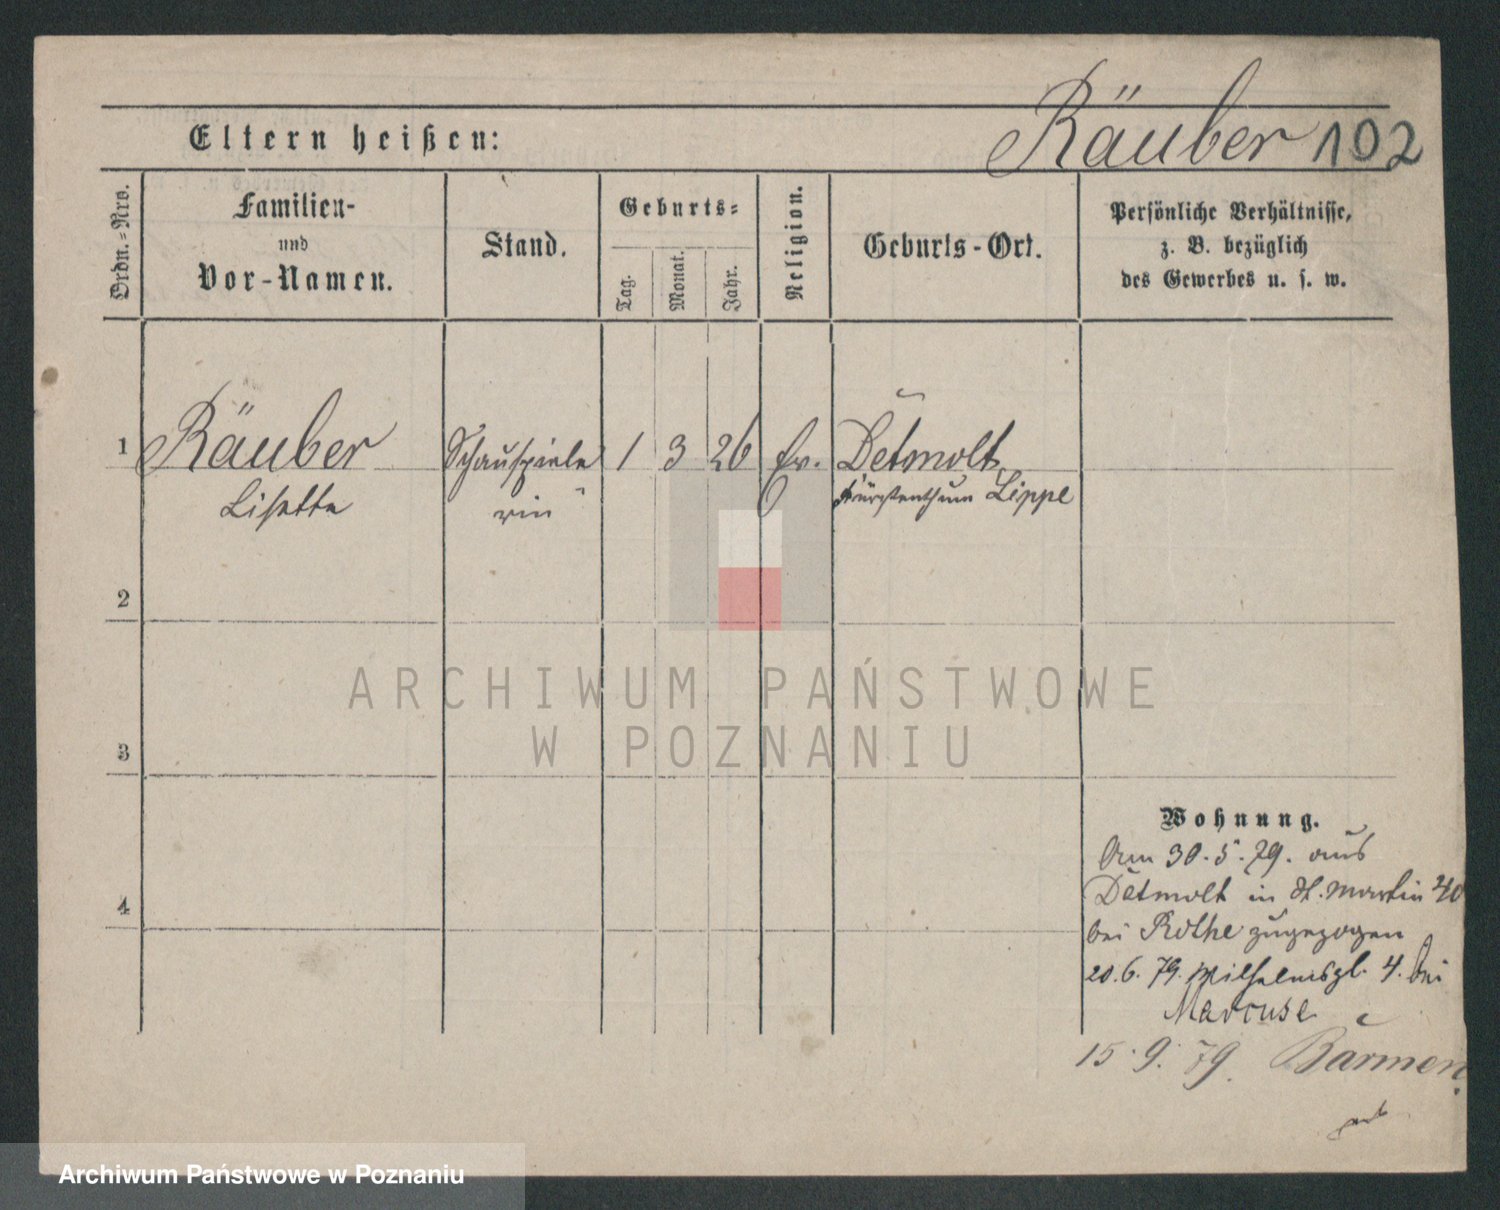 Räuber 102
Eltern heißen:
Ordn.-Nro.
Familien-
und
Vor-Namen.
Stand.
Geburts-
Tag.
Monat.
Jahr.
Religion.
Geburts-Ort.
Persönliche Verhältnisse,
z. B. bezüglich
des Gewerbes u. s. w.
1 Räuber Schauspiele 1 3 26 Ev. Detmolt
Lisette rin Fürstenthum Lippe
2
3
4
ARCHIWUM PAŃSTWOWE
W POZNANIU
Wohnung.
Am 30.5.79. aus
Detmolt in St. Martin 40
bei Rothe zugezogen
20.6.79. Wilhelmspl. 4. bei
Marcuse
15.9.79. Barmen
Archiwum Państwowe w Poznaniu